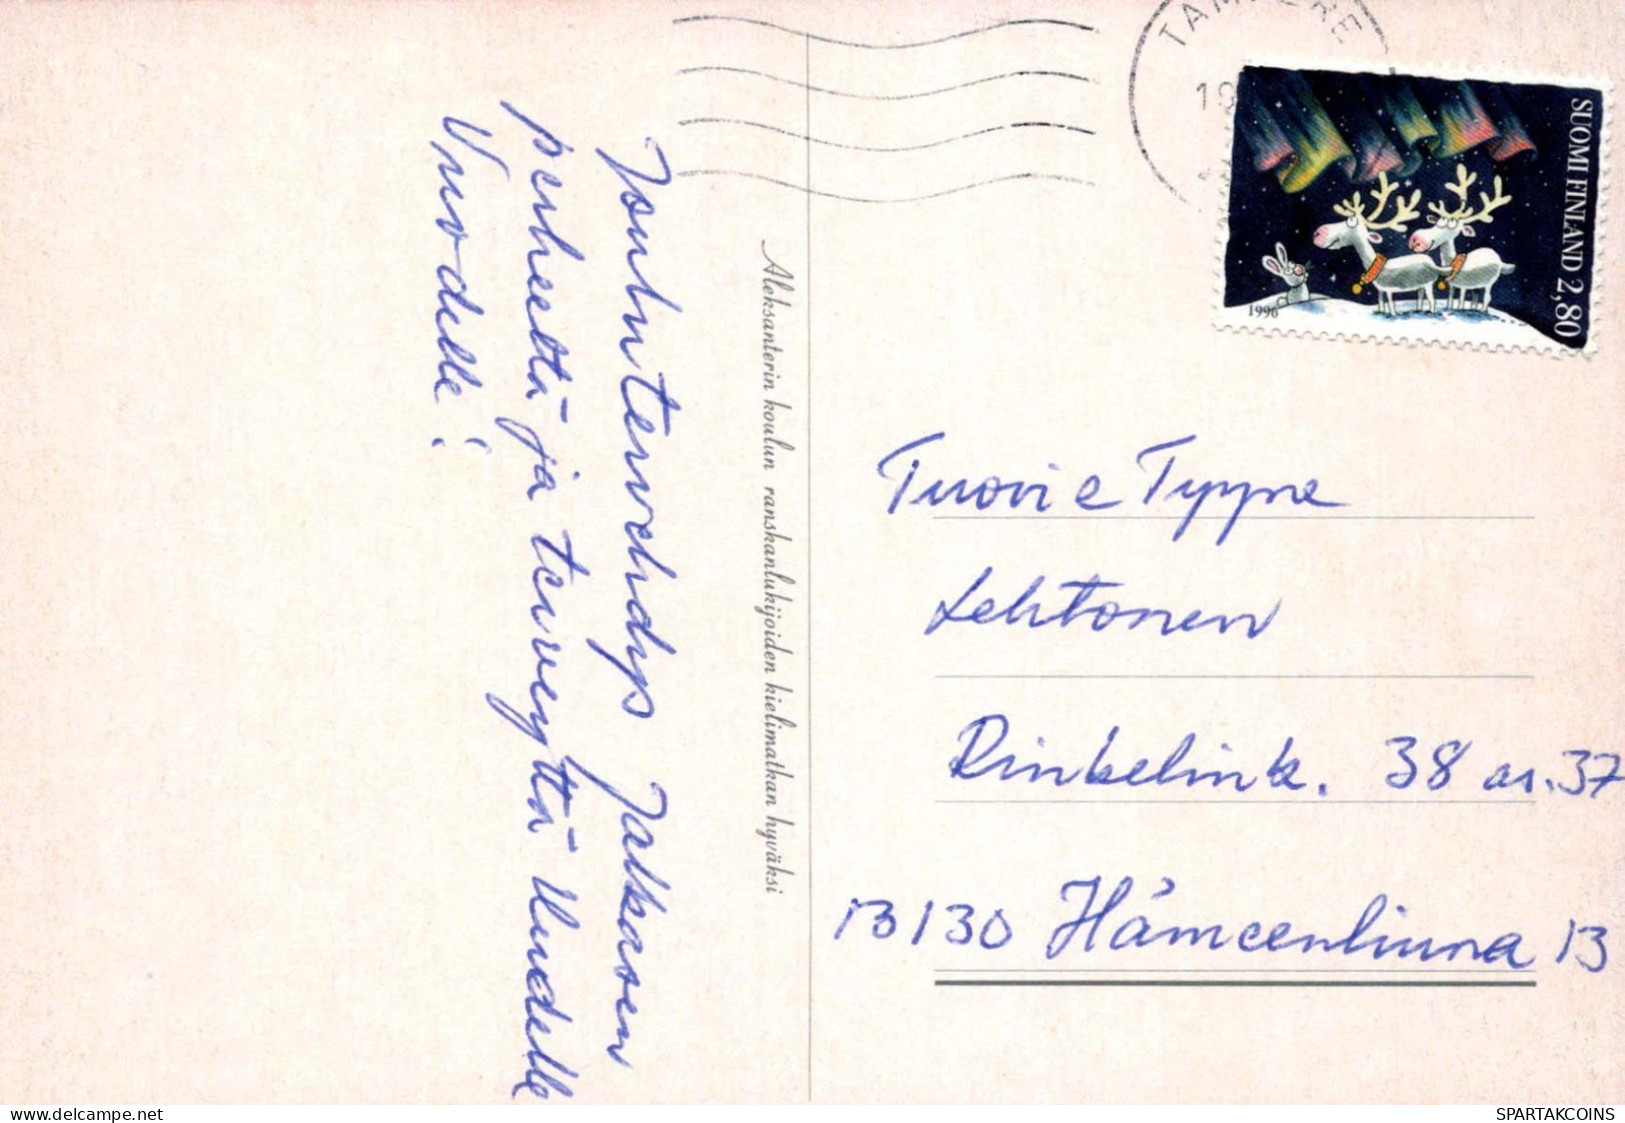 Joulutervehdys Jalkasen
perheeltä ja terveyttä Uudelle
Vuodelle!
Aleksanterin koulun ranskanlukijoiden kielimatkan hyväksi
TAMPERE
19
SUOMI FINLAND 2,80
1996
Tuovi e Tyyne
Lehtonen
Rinkelink. 38 as. 37
13130 Hämeenlinna 13
delcampe.net
SPARTAKCOINS